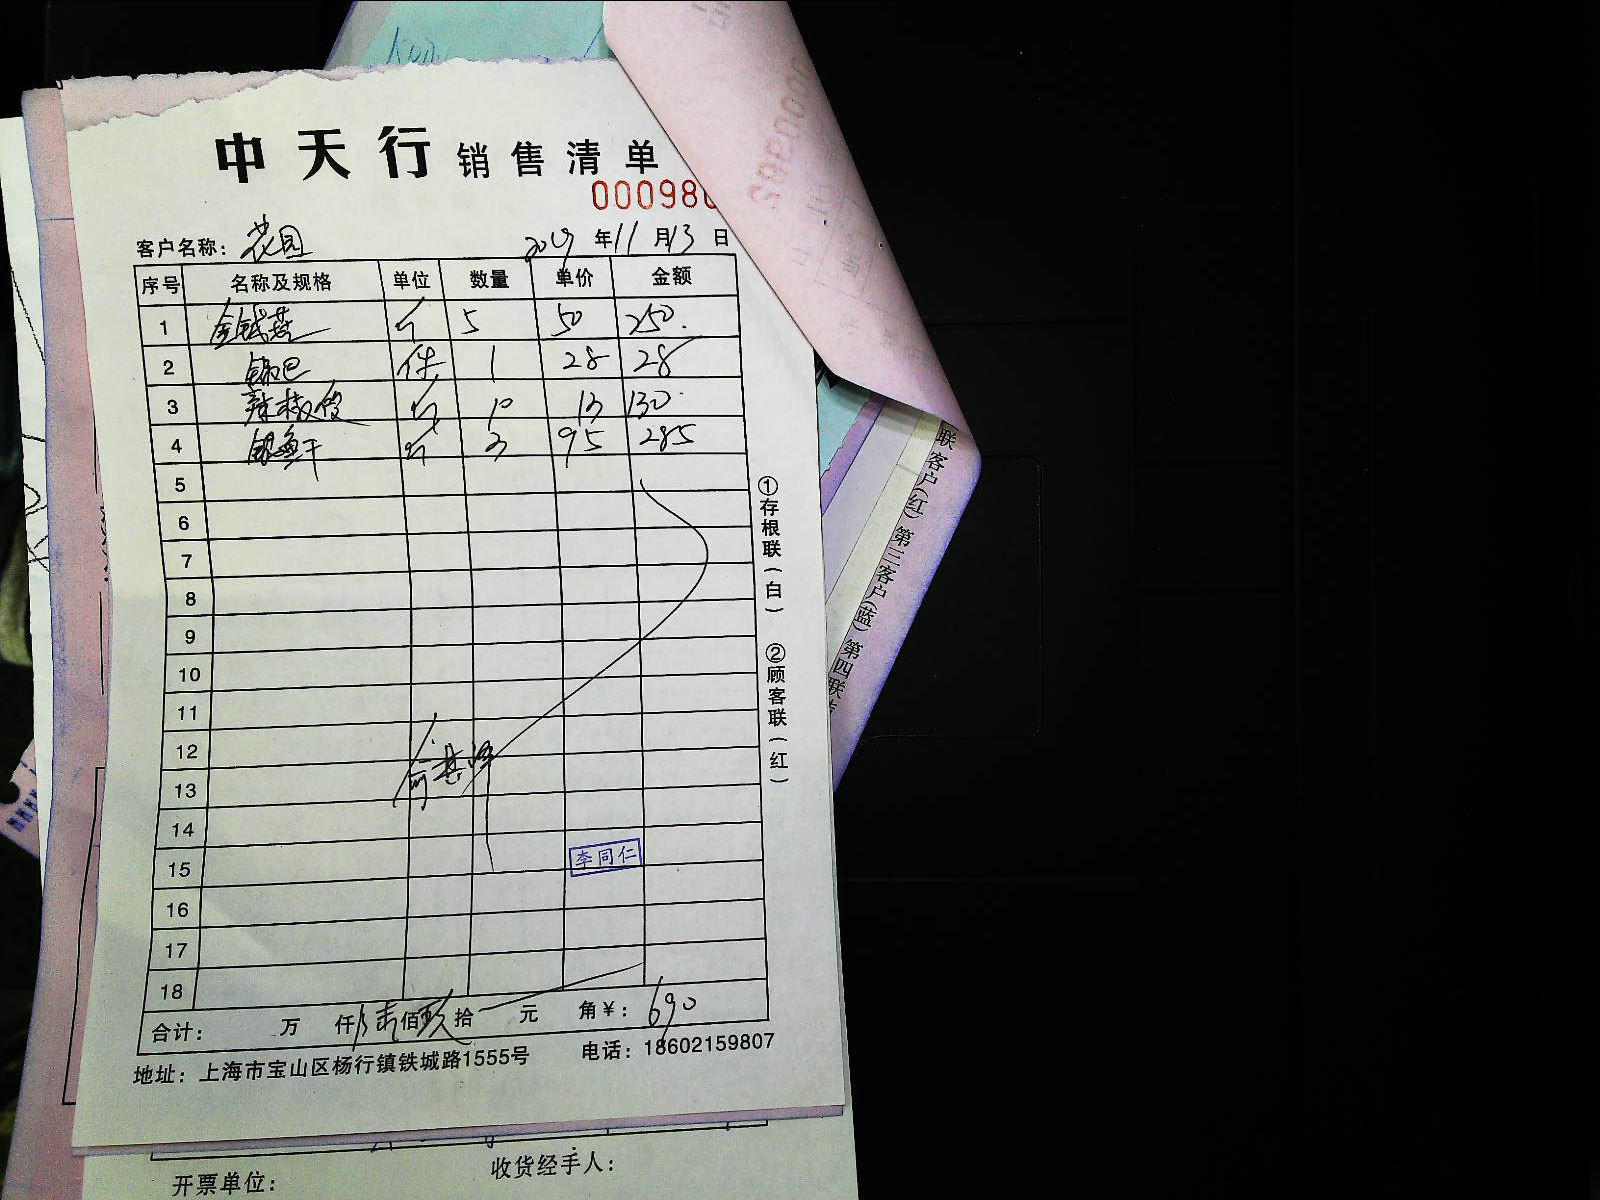 中天行 销售清单
000980
客户名称: 花园 2019 年 11 月 13 日
序号 名称及规格 单位 数量 单价 金额
1 金钱菇 个 5 50 250.
2 锅巴 件 1 28 28
3 辣椒 10 13 130.
4 银鱼干 3 95 285
5
6
7
8
9
10
11
12
13
14
15 李同仁
16
17
18
合计: 万 仟 陆 佰 玖 拾 元 角 ¥: 690
地址: 上海市宝山区杨行镇铁城路1555号 电话: 18602159807
①存根联(白) ②顾客联(红)
联客户(红) 第三客户(蓝) 第四联
开票单位: 收货经手人: